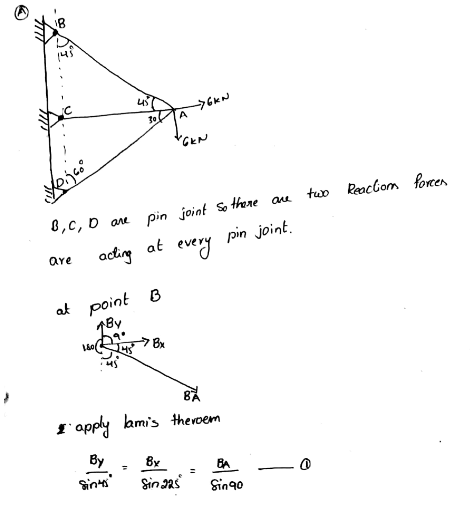 A
B
45°
C
45°
30
A
6kN
6kN
D
60°
B, C, D are pin joint So there are two Reaction forces
are acting at every pin joint.
at point B
By
9°
180
45°
Bx
45°
BA
apply lamis theroem
By/Sin45° = Bx/Sin225° = BA/Sin90 —— ①